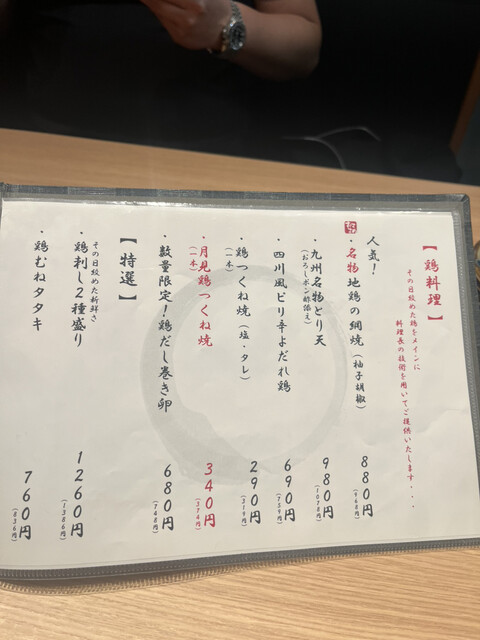 【鶏料理】
その日絞めた鶏をメインに
料理長の技術を用いてご提供いたします・・・
人気!
・名物地鶏の網焼(柚子胡椒)
880円
(968円)
・九州名物とり天
(おろしポン酢添え)
980円
(1078円)
・四川風ピリ辛よだれ鶏
690円
(759円)
・鶏つくね焼(塩・タレ)
(一本)
290円
(319円)
・月見鶏つくね焼
(一本)
340円
(374円)
・数量限定!鶏だし巻き卵
680円
(748円)
【特選】
その日絞めた新鮮さ
・鶏刺し2種盛り
1260円
(1386円)
・鶏むねタタキ
760円
(836円)